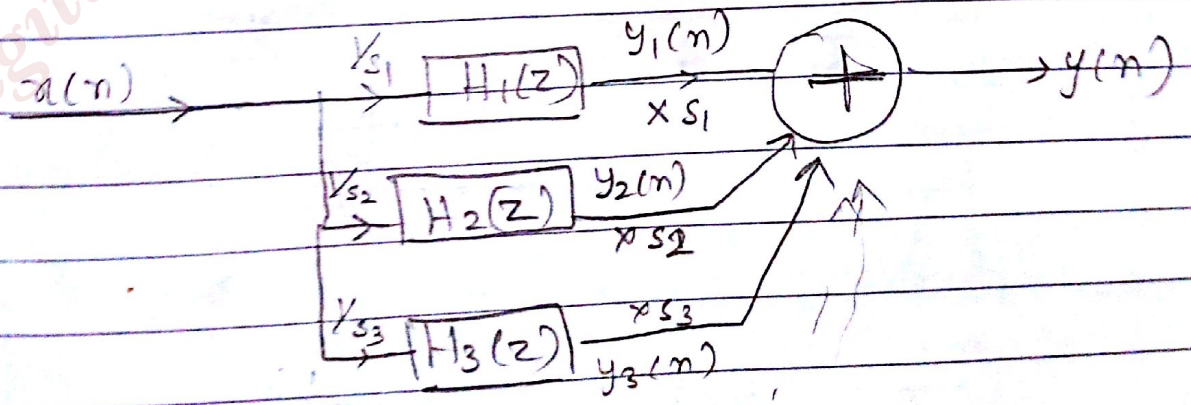 x(n) 1/S1 H1(z) y1(n) x S1 + y(n)
1/S2 H2(z) y2(n) x S2
1/S3 H3(z) x S3 y3(n)